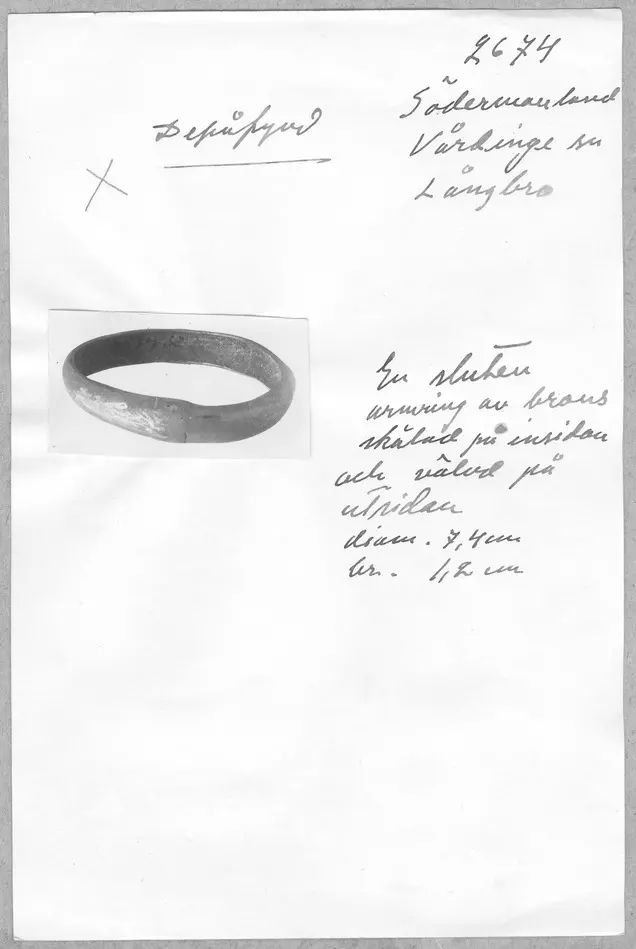 2674
Södermanland
Vårdinge sn
Långbro
Depåfynd
En sluten
armring av brons
skålad på insidan
och välvd på
utsidan
diam. 7,4 cm
br. 1,2 cm